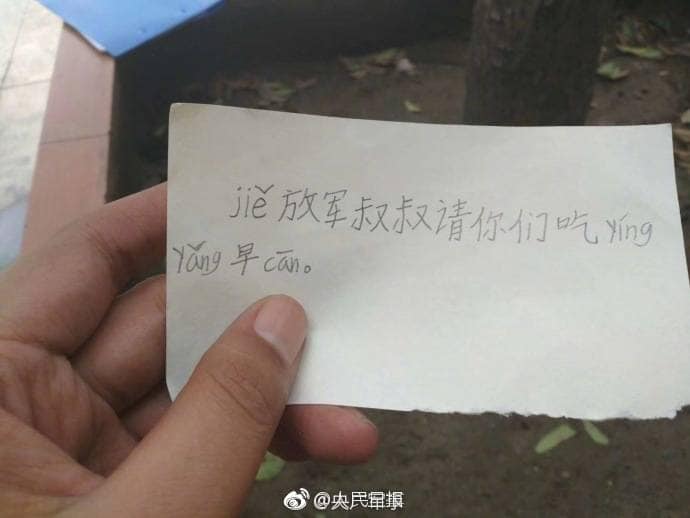 jiě放军叔叔请你们吃yíng
yǎng早cān。